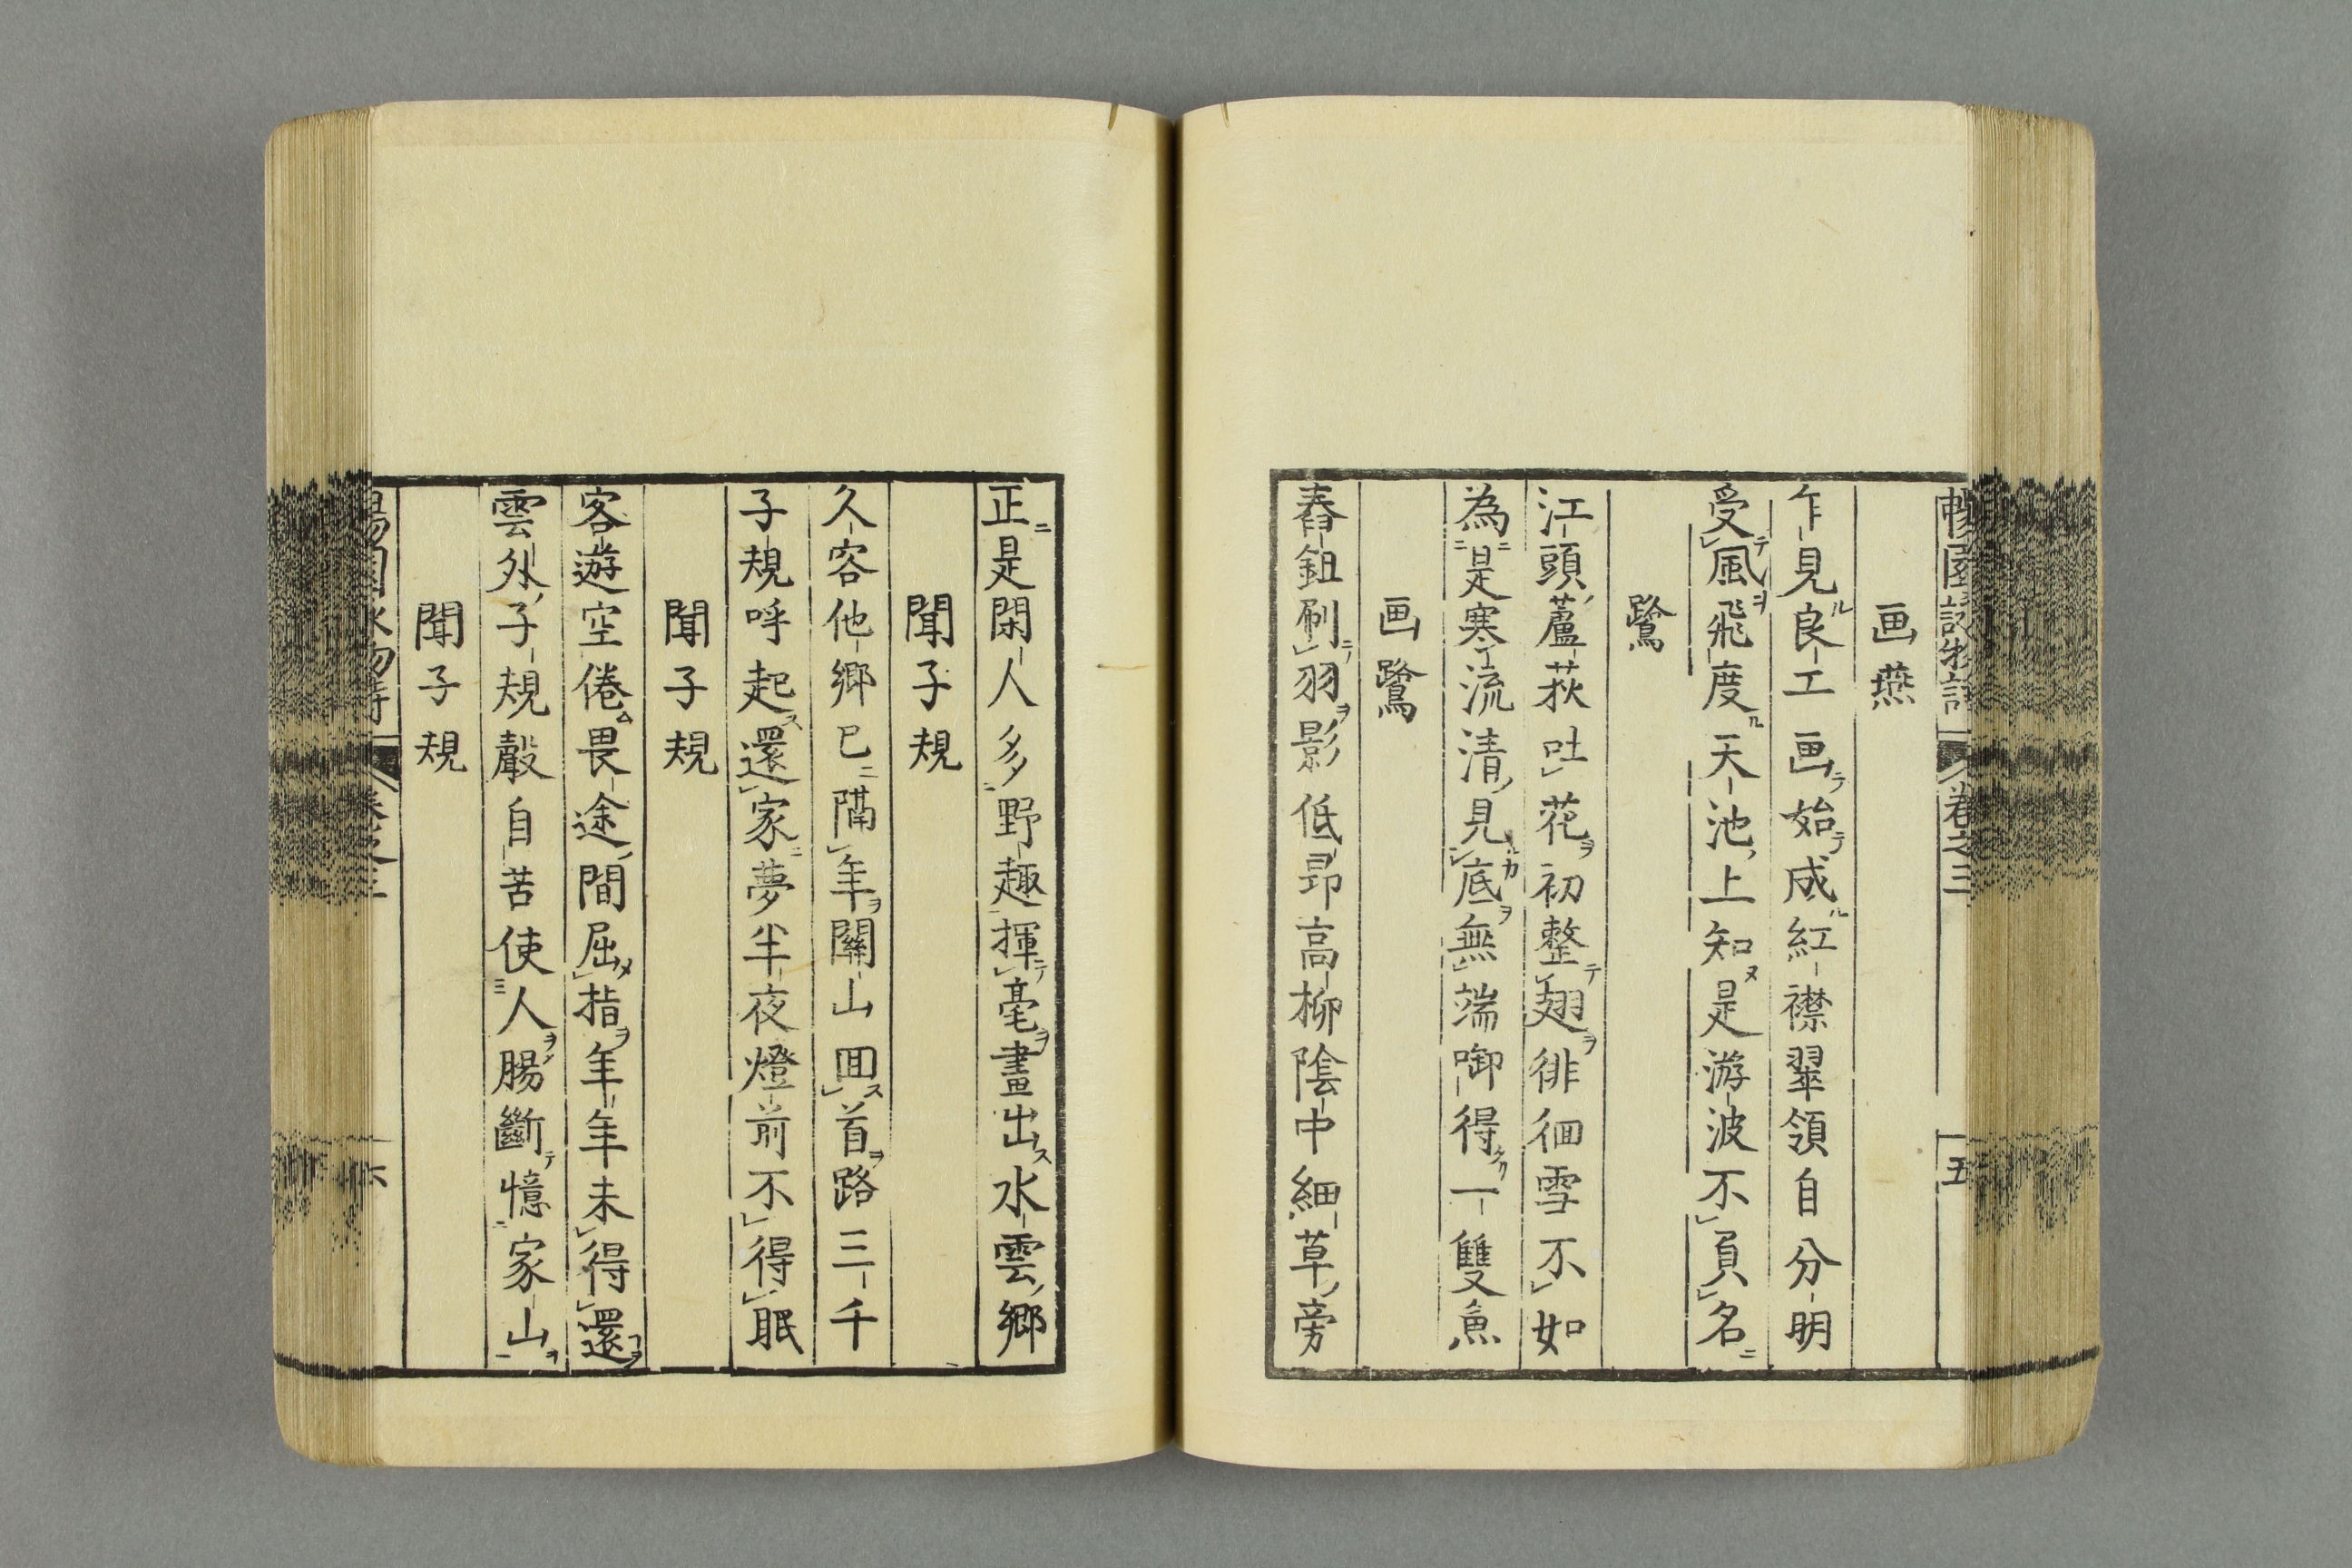 暢園詠物詩 卷之三 五
画燕
乍見良工画始成紅襟翠領自分明
受風飛度天池上知是游波不負名
鷺
江頭蘆荻吐花初整翅徘徊雪不如
為是寒流清見底無端啣得一雙魚
画鷺
舂鉏刷羽影低昂高柳陰中細草旁
正是閑人多野趣揮毫畫出水雲鄉
聞子規
久容他鄉已隔年關山囬首路三千
子規呼起還家夢半夜燈前不得眠
聞子規
客遊空倦畏途間屈指年年未得還
雲外子規聲自苦使人腸斷憶家山
聞子規
暢園詠物詩 卷之三 六